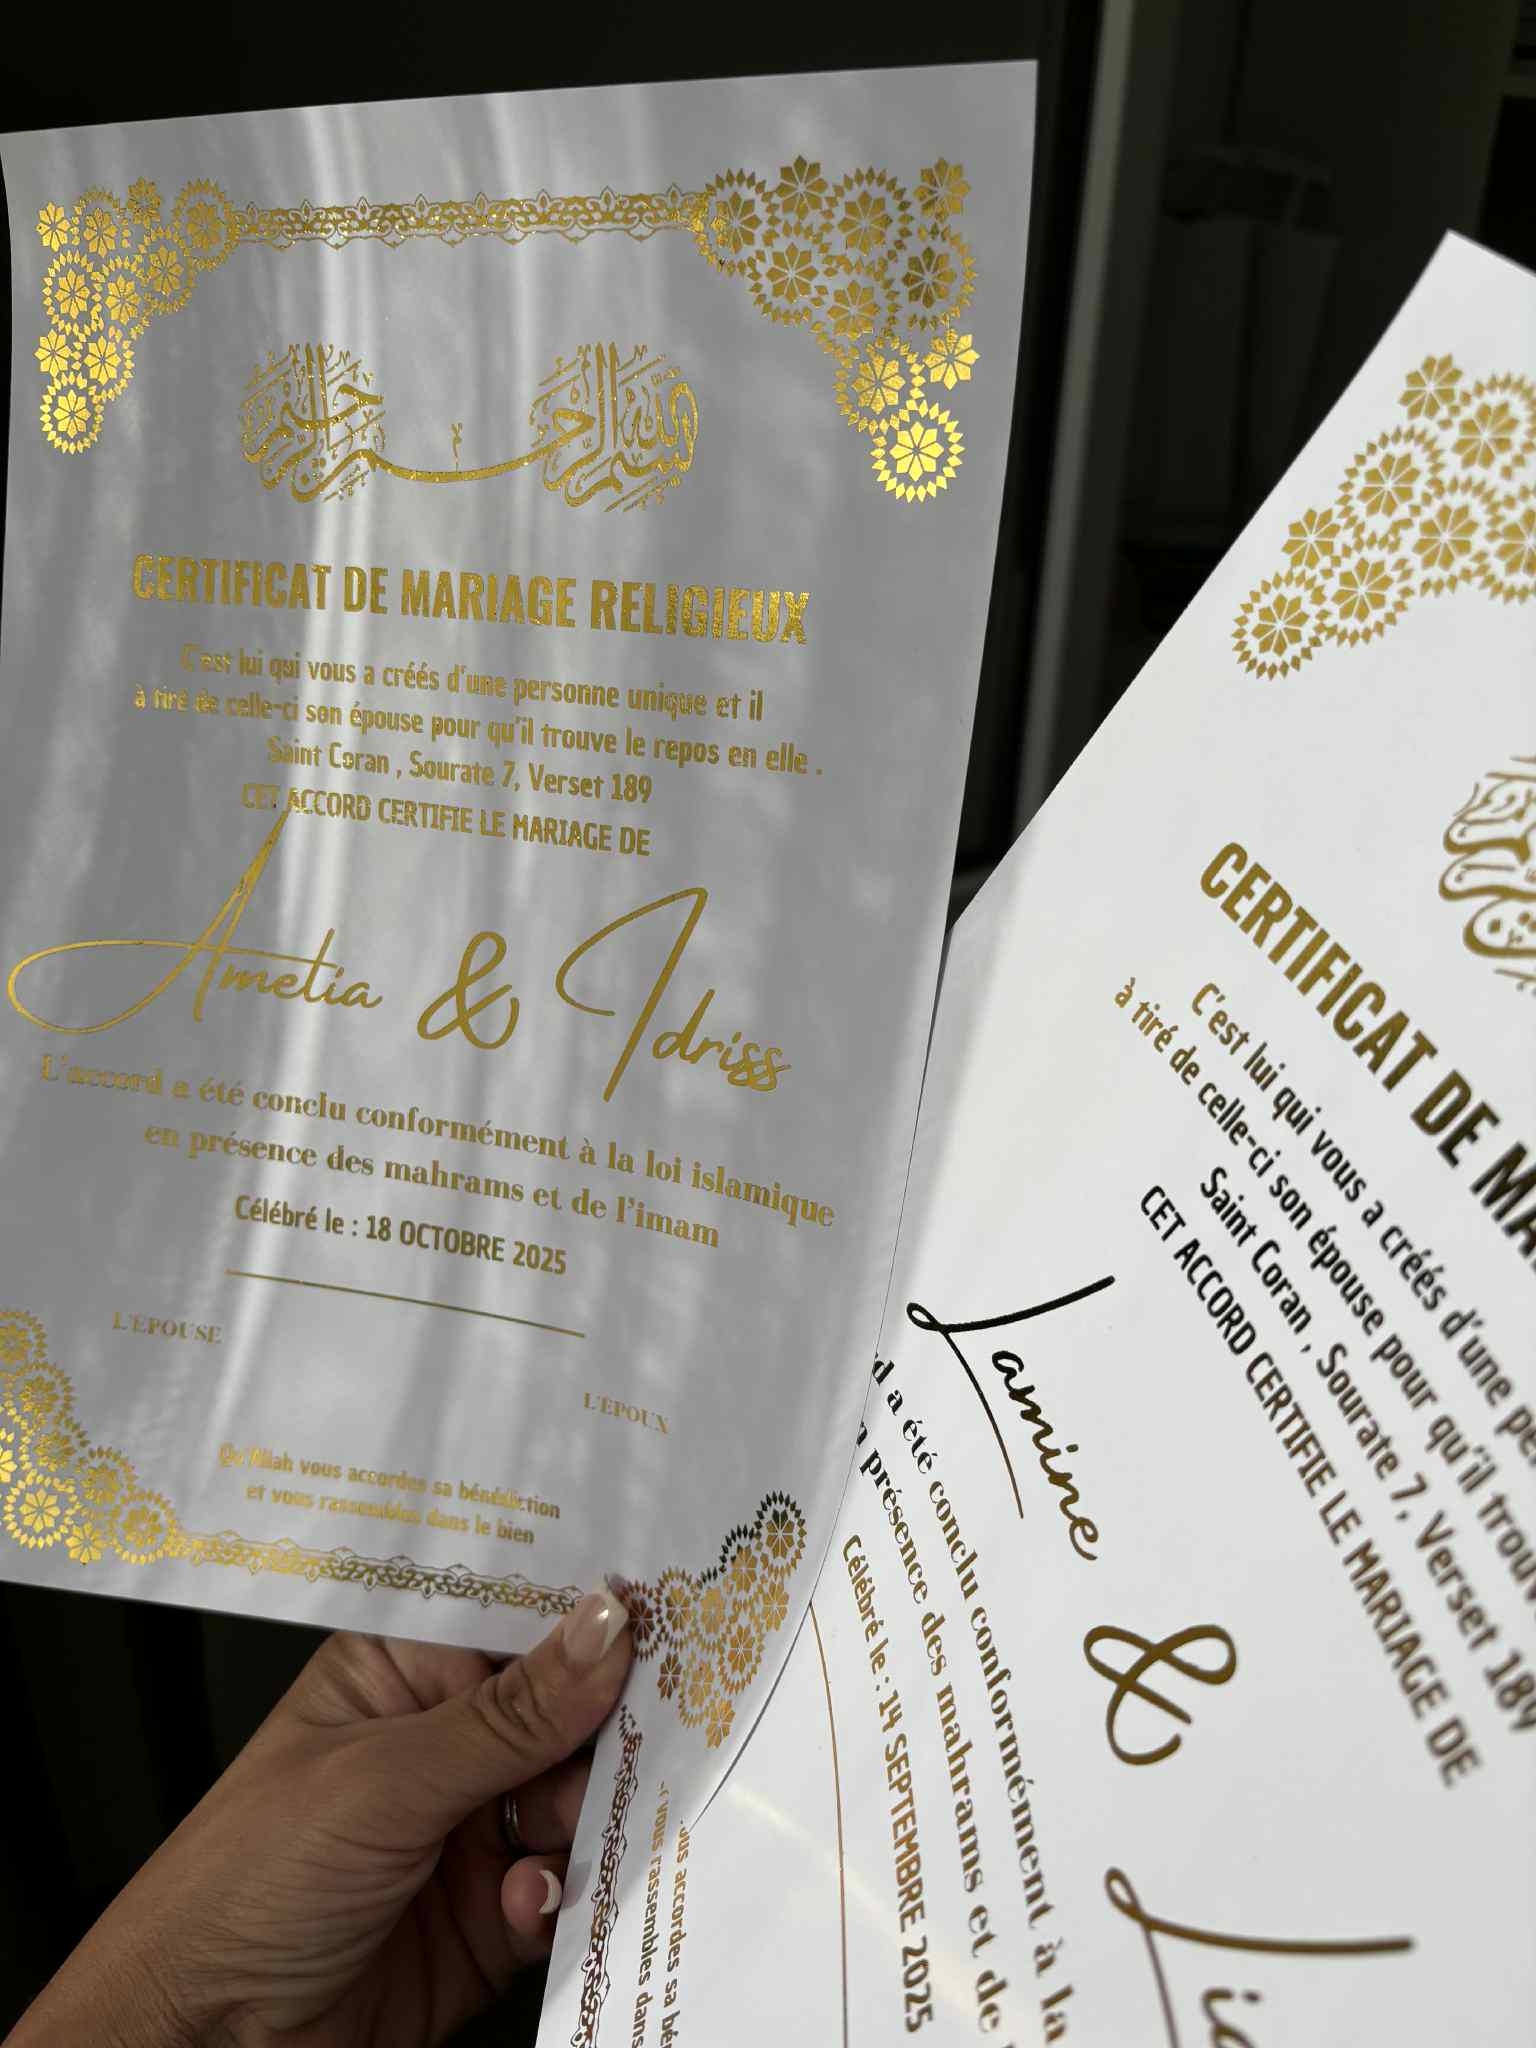 بسم الله الرحمن الرحيم
CERTIFICAT DE MARIAGE RELIGIEUX
C'est lui qui vous a créés d'une personne unique et il
à tiré de celle-ci son épouse pour qu'il trouve le repos en elle .
Saint Coran , Sourate 7, Verset 189
CET ACCORD CERTIFIE LE MARIAGE DE
Amelia & Idriss
L'accord a été conclu conformément à la loi islamique
en présence des mahrams et de l'imam
Célébré le : 18 OCTOBRE 2025
L'EPOUSE
L'EPOUX
Qu'Allah vous accordes sa bénédiction
et vous rassembles dans le bien
CERTIFICAT DE
C'est lui qui vous a créés d'une
à tiré de celle-ci son épouse pour qu'il
Saint Coran , Sourate 7, Verset 189
CET ACCORD CERTIFIE LE MARIAGE DE
Lamine
&
a été conclu conformément à la
présence des mahrams et de
Célébré le : 14 SEPTEMBRE 2025
accordes sa
vous rassembles dans